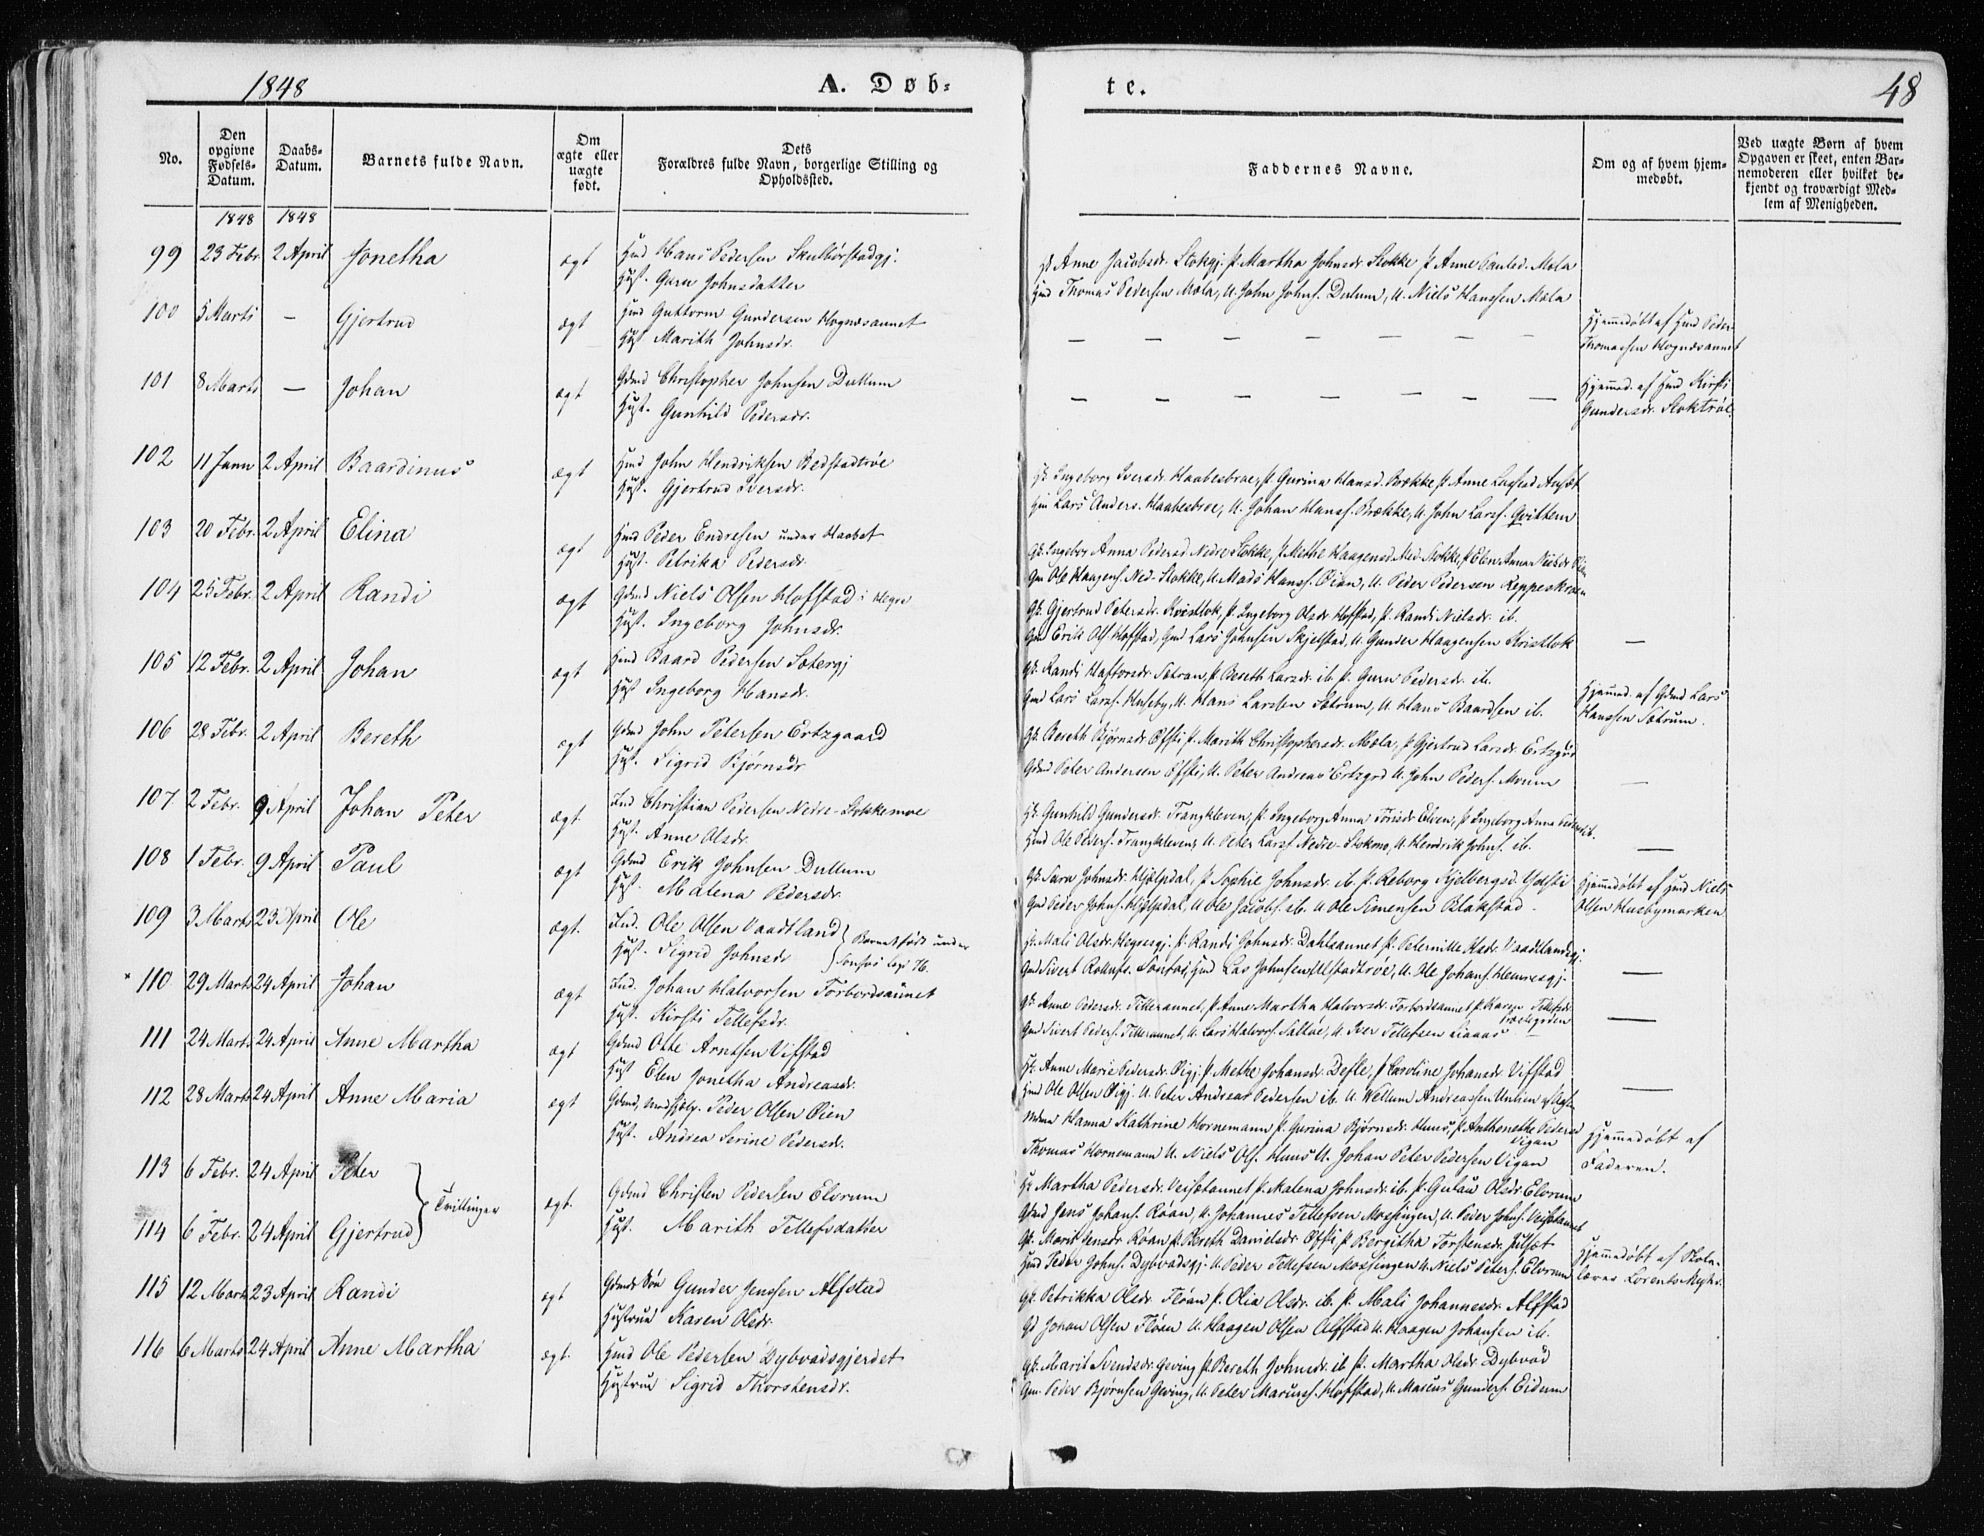 1848
A. Døb=
te.
48
No.
Den opgivne Fødsels-Datum.
Daabs-Datum.
Barnets fulde Navn.
Om ægte eller uægte født.
Dets Forældres fulde Navn, borgerlige Stilling og Opholdssted.
Faddernes Navne.
Om og af hvem hjemmedøbt.
Ved uægte Børn af hvem Opgaven er skeet, enten Barnemoderen eller hvilket bekjendt og troværdigt Medlem af Menigheden.
1848 1848
99 23 Febr. 2 April Jonetha ægt Hmd Hans Pedersen
Hust. Guru Johnsdatter
Anne Jacobsdr. Stokgj. P. Martha Johnsdr Stokke P. Anne Paulsd. Mæla
Hmd Thomas Pedersen Mæla, U. John Johns. Dulum, U. Niels Hanssen Mæla
100 5 Marts — Gjertrud ægt Hmd Guttorm Gundersen Hognæsaunet
Hust Marith Johnsdr.
— — — — — — —
Hjemmedøbt af Hmd Peder
Thomassen Hognæsaunet
101 8 Marts — Johan ægt Gdmd Christopher Johnsen Dullum
Hust. Gunhild Pedersdr.
— — — — — — —
Hjemmed. af Hmd Kirsti
Gundersdr. Stoktrøe
102 11 Janu 2 April Baardinus ægt Hmd John Hendriksen Bedstadtrøe
Hust. Gjertrud Iversdr.
K. Ingeborg Iversdr. Haabesbroe, P. Gurina Hansd. Brække P. Anne
Lars Anders. Haabesbroe, U. Johan Hans. Brække, U. John Lars. Qvittem
103 20 Febr. 2 April Elina ægt Hmd Peder Endresen under Haabet
Hust. Petrikka Pedersdr.
Anna Pedersd Nedre Stokke, P. Methe Haagensd. Ned. Stokke, P. Elen Anna
Gm Ole Haagens. Ned. Stokke, U. Mads Hans. Øian, U. Peder Pedersen Reppeskroen
104 25 Febr. 2 April Randi ægt Gdmd Niels Olsen Hofstad i Hegre
Hust. Ingeborg Johnsdr.
Gk. Gjertrud Petersdr. Kvistlok, P. Ingeborg Olsdr Hofstad, P. Randi Nielsdr. ib.
Gmd Erik Ols Hofstad, Gmd Lars Johnsen Skjelstad, U. Gunder Haagensen Kvistlok
—
105 12 Febr. 2 April Johan ægt Hmd Baard Pedersen Sætergj
Hust Ingeborg Hansdr.
Gk. Randi Haftorsdr. Sætran, P. Bereth Larsdr. ib P. Guru Pedersdr. ib.
Gmd Lars Lars. Huseby, U. Hans Larssen Sætrum, U. Hans Baardsen ib.
Hjemmed. af Gdmd Lars
Hanssen Sætrum.
106 28 Febr. 2 April Bereth ægt Gdmd John Petersen Ertzgaard
Hust. Sigrid Bjørnsdr
Gk. Bereth Bjørnsdr Øfsti P. Marith Christophersdr. Mæla, P. Gjertrud Larsdr. Ertzgrd
Gdmd Peter Andersen Øfsti, U. Peter Andreas Ertzgrd U. John Peders. Moum
—
107 2 Febr. 9 April Johan Peter ægt Ind Christian Pedersen Nedre-Stokkemoe
Hust. Anne Olsdr.
K. Gunhild Gundersdr. Trangkleven, P. Ingeborg Anna Elven, P. Ingeborg Anna
Hmd Ole Peders. Trangkleven, U. Peter Lars. Nedre-Stokmo, U. Hendrik Johns. ib.
—
108 1 Febr. 9 April Paul ægt Gdmd Erik Johnsen Dullum
Hust. Malena Pedersdr.
Gk. Sara Johnsdr. Hjelpdal, P. Sophie Johnsdr. ib P. Reborg Kjelbergsd.
Gmd Peder Johns. Hjelpdal, U Ole Jacobs. ib. U Ole Simensen Blakstad.
Hjemmedøbt af Hmd Niels
Olsen Husbymarken
109 3 Marts 23. April Ole ægt. Ind. Ole Olsen Vaadtland } Barnet født under
Hust. Sigrid Johnsdr
K. Mali Olsdr. Hegresgj. P. Randi Johnsdr. Dahlsaunet P. Peternille Olsdr. Vaadtland
—
110 29 Marts 24 April Johan ægt Ind. Johan Halvorsen Forbordsaunet
Hust. Kirsti Tellefsdr.
Gk. Anne Pedersdr. Tilleraunet, P. Anne Martha Halvorsdr. Forbordsaunet P. Karen Tellefsdr
Gmd Sivert Peders. Tilleraunet, U. Lars Halvors. Salthe, U. Iver Tellefsen Liaaas
—
111 24 Marts 24 April Anne Martha ægt Gdmd Ole Arntsen Vifstad
Hust Elen Jonetha Andreasdr.
K. Anne Marie Pedersdr. Øigj. P. Methe Johansdr. Defle, P. Caroline Johansdr Vifstad
Hmd Ole Olsen Øigj. U. Peter Andreas Pedersen ib. U. Wellum Andreassen
—
112 28 Marts 24 April Anne Maria ægt Gdmd, Peder Olsen Øien
Hust. Andrea Serine Pedersdr.
Mdm Hanna Kathrine Hornemann P. Gurina Bjørnsdr. Huus, P. Anthonette Pedersd
Vigan
Thomas Hornemann U. Niels Ols. Huus U. Johan Peter Pedersen Vigan
Hjemmedøbt af
Faderen.
113 6 Febr. 24 April Peter } Tvillinger ægt. Gdmd Christen Pedersen Elvrum
Hust. Marith Tellefsdatter
Martha Pedersdr. Veisøtaunet P. Malena Johnsdr. ib. P. Gulau Olsdr Elvrum
Gmd Jens Johans. Røan, U. Johannes Tellefsen Mossingen, U. Peder Johns. Veisøtaunet
114 6 Febr. 24 April Gjertrud
Gk. Marit Jensdr Røan P. Bereth Danielsdr Øfsti P. Bergitha Torstensdr. Julset
Hmd Peder Johns. Dybvadsgj. U. Peder Tellefsen Mossingen U. Niels Peters. Elvrum
Hjemmedøbt af Skolelærer
Lorents Myhr.
115 12 Marts 23 April Randi ægt Gdmds Søn Gunder Jenssen Alfstad
Hustrue Karen Olsdr.
Gk. Petrikka Olsdr. Fløan P. Olia Olsdr. ib. P. Mali Johannesdr. Alfstad
Johan Olsen Fløan U. Haagen Olsen Alfstad U. Haagen Johansen ib.
116 6 Marts 24 April Anne Martha ægt. Hmd Ole Pedersen Dybvadsgjerdet
Hustrue Sigrid Thorstensdr.
Gk. Marit Svendsdr. Geving P. Bereth Johnsdr. ib P. Martha Olsdr. Dybvad
Gm. Peder Bjørnsen Geving, U. Peter Marius. Hofstad, U. Marcus Gunders. Eidum